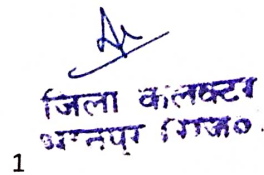 जिला कलक्टर
भरतपुर (राज०
1